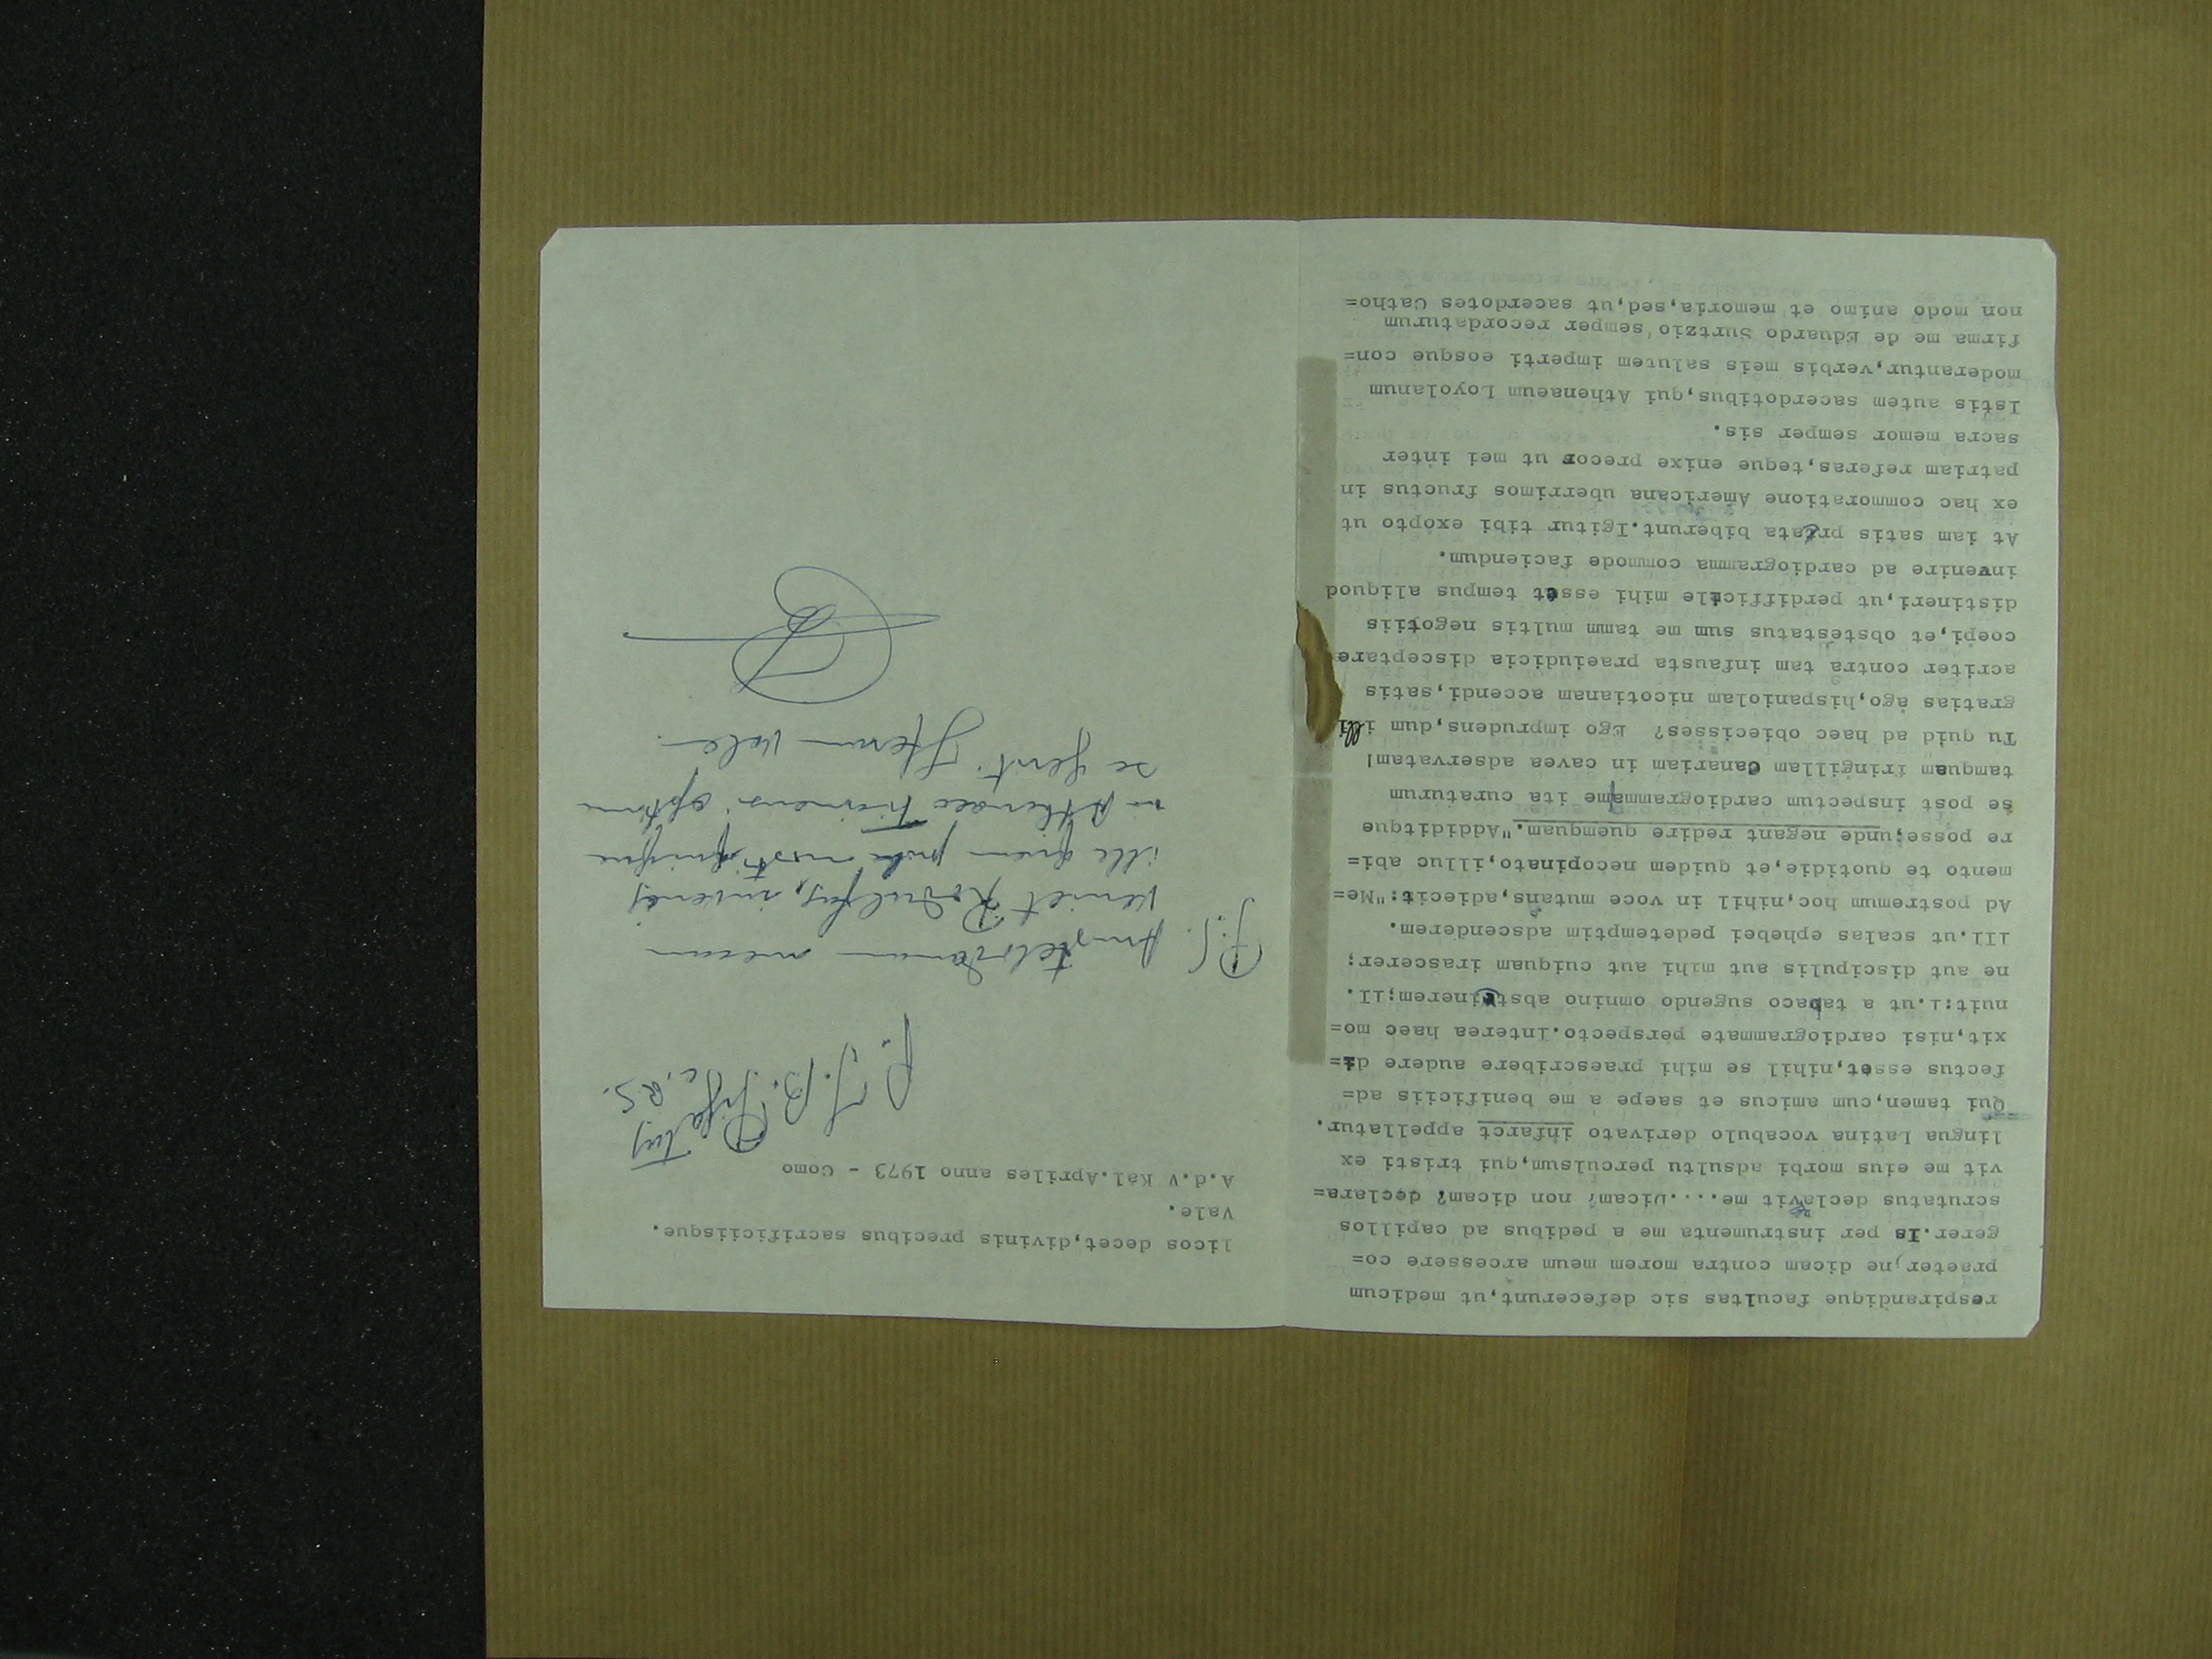 respirandique facultas sic defecerunt,ut medicum
praeter,ne dicam contra morem meum arcessere co=
gerer.Is per instrumenta me a pedibus ad capillos
scrutatus declavit me....Dicam? non dicam? declara=
vit me eius morbi adsultu perculsum,qui tristi ex
lingua Latina vocabulo derivato infarct appellatur.
Qui tamen,cum amicus et saepe a me benificiis ad=
fectus esset,nihil se mihi praescribere audere di=
xit,nisi cardiogrammate perspecto.Interea haec mo=
nuit:I.ut a tabaco sugendo omnino abstinerem;II.
ne aut discipulis aut mihi aut cuiquam irascerer;
III.ut scalas ephebei pedetemptim adscenderem.
Ad postremum hoc,nihil in voce mutans,adiecit:"Me=
mento te quotidie,et quidem necopinato,illuc abi=
re posse;unde negant redire quemquam."Addiditque
se post inspectum cardiogramma me ita curaturum
tamquam fringillam Canariam in cavea adservatam!
Tu quid ad haec obiecisses? Ego imprudens,dum illi
gratias ago,hispaniolam nicotianam accendi,satis
acriter contra tam infausta praeiudicia disceptare
coepi,et obstestatus sum me tamm multis negotiis
distineri,ut perdifficile mihi esset tempus aliquod
invenire ad cardiogramma commode faciendum.
At iam satis prata biberunt.Igitur tibi exopto ut
ex hac commoratione Americana uberrimos fructus in
patriam referas,teque enixe precor ut mei inter
sacra memor semper sis.
Istis autem sacerdotibus,qui Athenaeum Loyolanum
moderantur,verbis meis salutem imperti eosque con=
firma me de Eduardo Surtzio semper recordaturum
non modo animo et memoria,sed,ut sacerdotes Catho=
licos decet,divinis precibus sacrificiisque.
Vale.
A.d.V Kal.Apriles anno 1973 - Como
P. J. B. Pigatus
c. R. S.
P.S. Amstelodamum mecum
veniet Rodulfus, iuvenis
ille quem probe nosti quique
in Athenaeo Ticinensi optime
se gerit. Iterum vale.